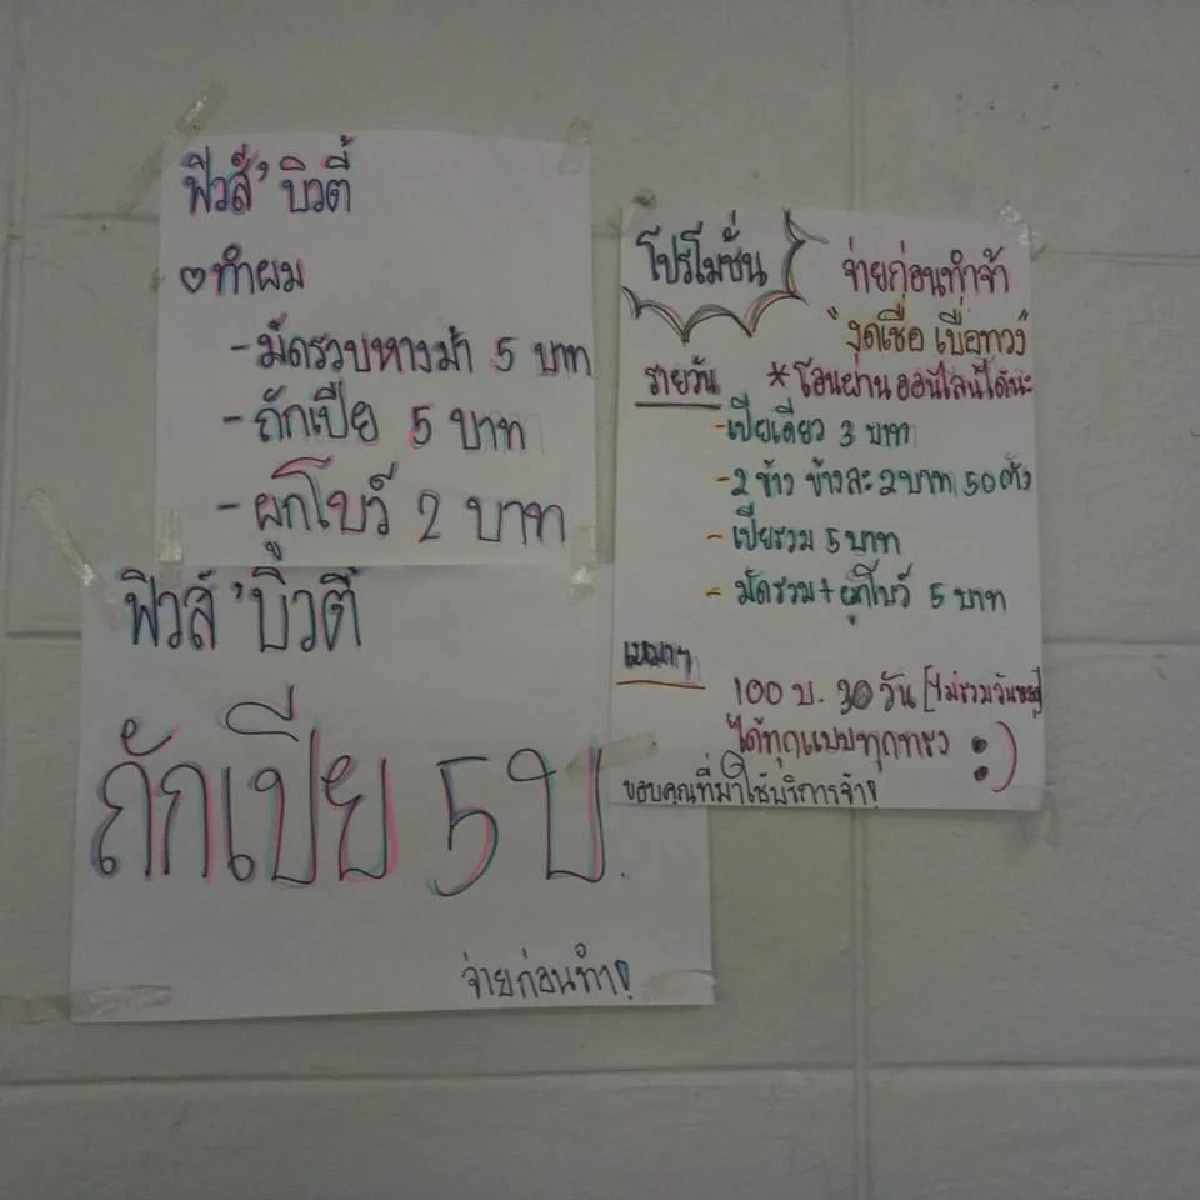 ฟิวส์'บิวตี้
♡ทำผม
- มัดรวบหางม้า 5 บาท
- ถักเปีย 5 บาท
- ผูกโบว์ 2 บาท
ฟิวส์'บิวตี้
ถักเปีย 5 บ.
จ่ายก่อนทำ!
โปรโมชั่น
จ่ายก่อนทำจ้า
"งดเชื่อ เบื่อทวง"
รายวัน *โอนผ่านออนไลน์ได้นะ
- เปียเดี่ยว 3 บาท
- 2 ข้าง ข้างละ 2 บาท 50 ตัง
- เปียรวม 5 บาท
- มัดรวม + ผูกโบว์ 5 บาท
เหมาๆ
100 บ. 30 วัน [ไม่รวมวันหยุด]
ได้ทุกแบบทุกทรง :)
ขอบคุณที่มาใช้บริการจ้า!